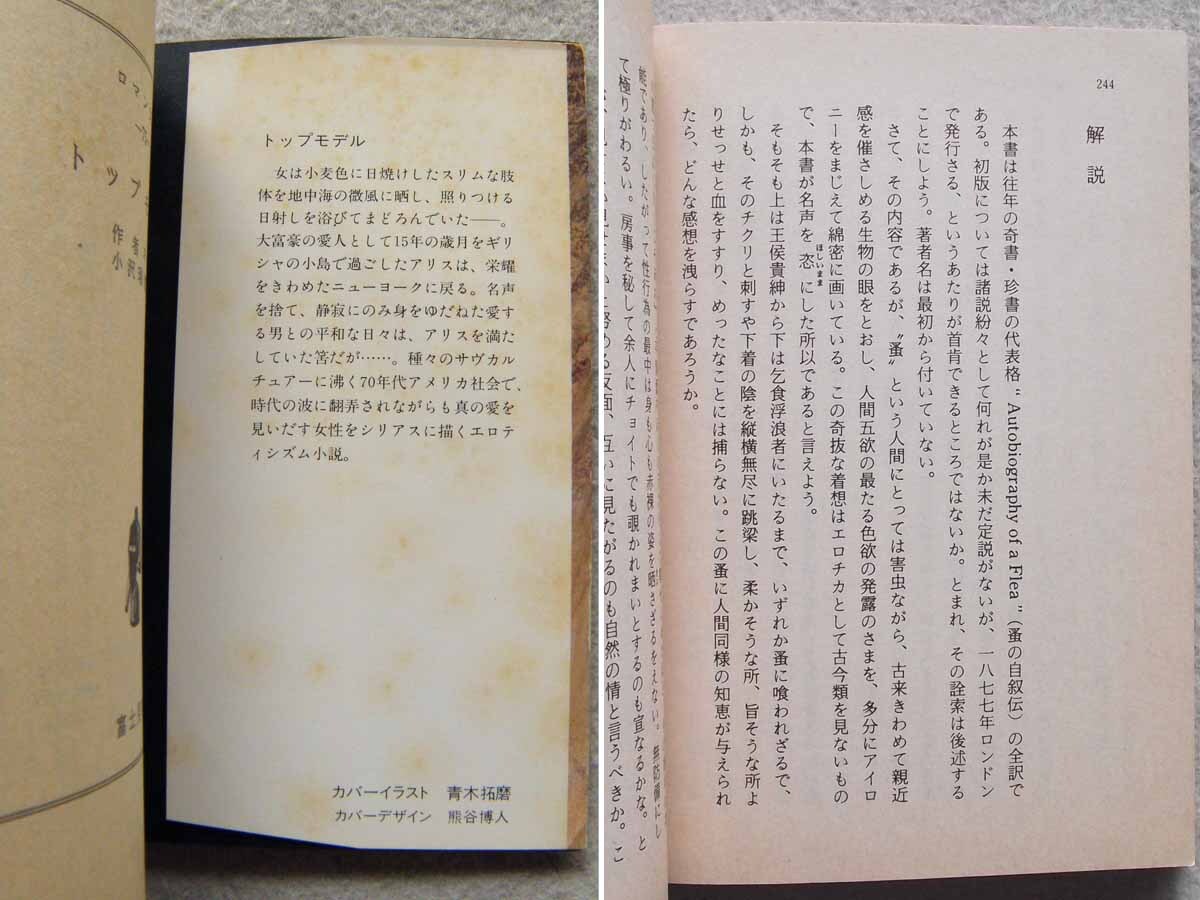 ロマン
トップ
作者
小沢瑞
富士見
トップモデル
女は小麦色に日焼けしたスリムな肢
体を地中海の微風に晒し、照りつける
日射しを浴びてまどろんでいた――。
大富豪の愛人として15年の歳月をギリ
シャの小島で過ごしたアリスは、栄耀
をきわめたニューヨークに戻る。名声
を捨て、静寂にのみ身をゆだねた愛す
る男との平和な日々は、アリスを満た
していた筈だが……。種々のサヴカル
チュアーに沸く70年代アメリカ社会で、
時代の波に翻弄されながらも真の愛を
見いだす女性をシリアスに描くエロテ
ィシズム小説。
カバーイラスト 青木拓磨
カバーデザイン 熊谷博人
244
解説
本書は往年の奇書・珍書の代表格“Autobiography of a Flea”(蚤の自叙伝)の全訳で
ある。初版については諸説紛々として何れが是か未だ定説がないが、一八七七年ロンドン
で発行さる、というあたりが首肯できるところではないか。とまれ、その詮索は後述する
ことにしよう。著者名は最初から付いていない。
さて、その内容であるが、〝蚤〟という人間にとっては害虫ながら、古来きわめて親近
感を催さしめる生物の眼をとおし、人間五欲の最たる色欲の発露のさまを、多分にアイロ
ニーをまじえて綿密に画いている。この奇抜な着想はエロチカとして古今類を見ないもの
で、本書が名声を恣ほしいままにした所以であると言えよう。
そもそも上は王侯貴紳から下は乞食浮浪者にいたるまで、いずれか蚤に喰われざるで、
しかも、そのチクリと刺すや下着の陰を縦横無尽に跳梁し、柔かそうな所、旨そうな所よ
りせっせと血をすすり、めったなことには捕らない。この蚤に人間同様の知恵が与えられ
たら、どんな感想を洩らすであろうか。
能であり、したがって性行為の最中は身も心も赤裸の姿を晒さざるをえない。無防備にし
て極りがわるい。房事を秘して余人にチョイトでも覗かれまいとするのも宣なるかな。と
努める反面、互いに見たがるのも自然の情と言うべきか。こ